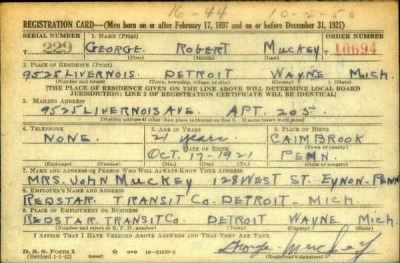 16-44 10-3-50
REGISTRATION CARD—(Men born on or after February 17, 1897 and on or before December 31, 1921)
SERIAL NUMBER 1. NAME (Print) ORDER NUMBER
T 229 GEORGE ROBERT MUCKEY T 10694
(First) (Middle) (Last)
2. PLACE OF RESIDENCE (Print)
9525 LIVERNOIS DETROIT WAYNE MICH.
(Number and street) (Town, township, village, or city) (County) (State)
[THE PLACE OF RESIDENCE GIVEN ON THE LINE ABOVE WILL DETERMINE LOCAL BOARD
JURISDICTION; LINE 2 OF REGISTRATION CERTIFICATE WILL BE IDENTICAL]
3. MAILING ADDRESS
9525 LIVERNOIS AVE. APT. 205.
[Mailing address if other than place indicated on line 2. If same insert word same]
4. TELEPHONE 5. AGE IN YEARS 6. PLACE OF BIRTH
NONE. 21 years CAIMBROOK
DATE OF BIRTH (Town or county)
OCT. 17-1921 PENN.
(Exchange) (Number) (Mo.) (Day) (Yr.) (State or country)
7. NAME AND ADDRESS OF PERSON WHO WILL ALWAYS KNOW YOUR ADDRESS
MRS. JOHN MUCKEY 128 WEST ST. EYNON-PENN
8. EMPLOYER'S NAME AND ADDRESS
REDSTAR. TRANSIT CO. DETROIT-MICH.
9. PLACE OF EMPLOYMENT OR BUSINESS
REDSTAR. TRANSIT CO. DETROIT WAYNE MICH.
(Number and street or R. F. D. number) (Town) (County) (State)
I AFFIRM THAT I HAVE VERIFIED ABOVE ANSWERS AND THAT THEY ARE TRUE.
D. S. S. Form 1
(Revised 1-1-42) 16-21630-2 George Muckey